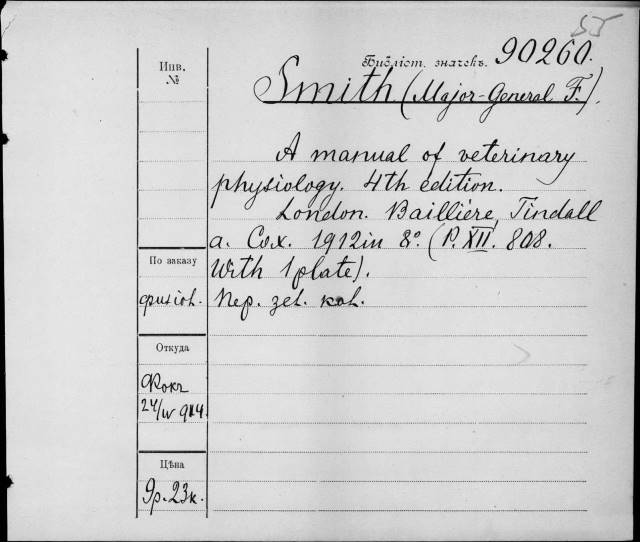 55
Инв.
№
Библіот. значекъ. 90260.
Smith (Major-General F.).
A manual of veterinary
physiology. 4th edition.
London. Baillière, Tindall
a. Cox. 1912 in 8º. (P. XII. 808.
With 1 plate).
По заказу
физіол. Пер. зел. кол.
Откуда
Фокъ
24/IV 914.
Цѣна
9р. 23к.